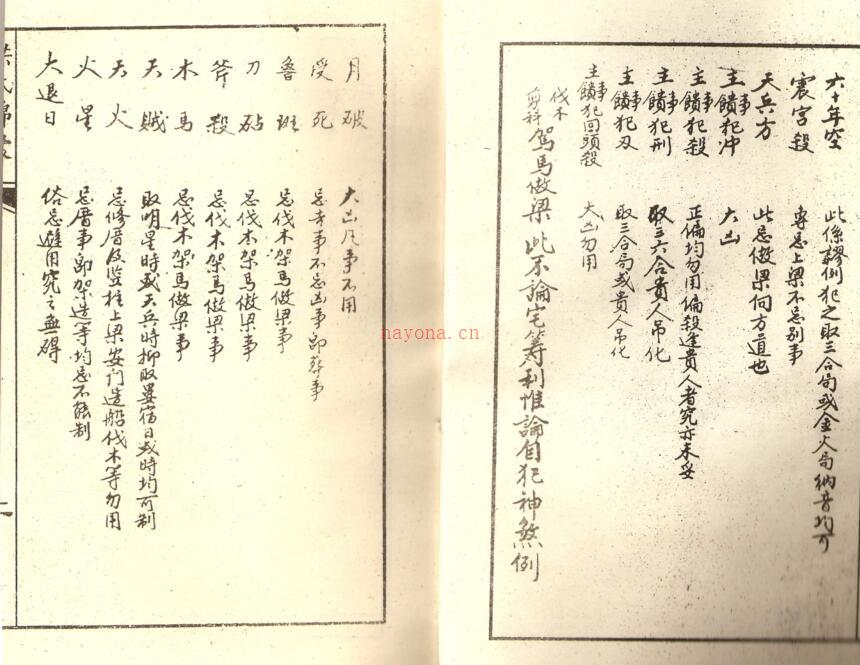 六十年空 此係謬例犯之取三合局或金火局納音均可
震宮殺 專忌上梁不忌別事
天兵方 此忌做梁向方道也
主事饋犯冲 大凶
主事饋犯殺 正偏均勿用偏殺逢貴人者究亦未妥
主事饋犯刑 取三六合貴人吊化
主事饋犯刃 取三合局或貴人吊化
主事饋犯回頭殺 大凶勿用
伐木剪料駕馬做梁此不論宅筭利惟論自犯神煞例
月破 大凶凡事不用
受死 忌吉事不忌凶事即葬事
魯班 忌伐木架馬做梁事
刀砧 忌伐木架馬做梁事
斧殺 忌伐木架馬做梁事
木馬 忌伐木架馬做梁事
天賊 取明星時或天兵時抑取婁宿日或時均可制
天火 忌修厝及豎柱上梁安门造船伐木等勿用
火星 忌厝事即架造等均忌不能制
大退日 俗忌避用究之無碍
nayona.cn